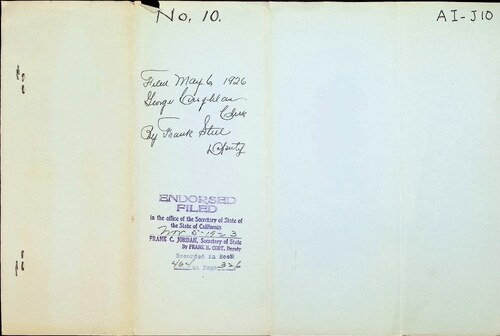 No. 10.
AI-J10
Filed May 6, 1926
George Coughlan
Clerk
By Frank Steel
Deputy
ENDORSED
FILED
in the office of the Secretary of State of
the State of California
5-1923
FRANK C. JORDAN, Secretary of State
By FRANK H. CORY, Deputy
Recorded in Book
464 at Page 326